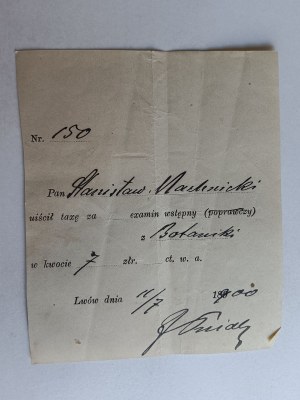 Nr. 150
Pan Stanisław Machnicki
uiścił taxę za examin wstępny (poprawczy)
z Botaniki
w kwocie 7 złr. ct. w. a.
Lwów dnia 11/7 1900